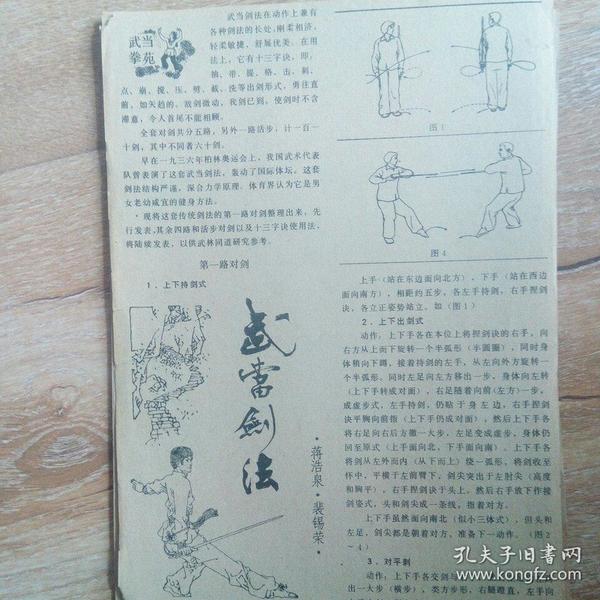 武当
拳苑
武当剑法在动作上兼有
各种剑法的长处，刚柔相济，
轻柔敏捷，舒展优美。在用
法上，它有十三字诀，即：
抽、带、提、格、击、刺、
点、崩、搅、压、劈、截、洗等出剑形式，勇往直
前，如矢趋的，敌剑微动，我剑已到，使剑时不含
滞意，令人首尾不能相顾。
全套对剑共分五路，另外一路活步，计一百一
十剑，其中不同者六十剑。
早在一九三六年柏林奥运会上，我国武术代表
队曾表演了这套武当剑法，轰动了国际体坛。这套
剑法结构严谨，深合力学原理，体育界认为它是男
女老幼咸宜的健身方法。
现将这套传统剑法的第一路对剑整理出来，先
行发表，其余四路和活步对剑以及十三字诀使用法，
将陆续发表，以供武林同道研究参考。
第一路对剑
1．上下持剑式
武当剑法
·蒋浩泉·裴锡荣·
图1
图4
上手（站在东边面向北方），下手（站在西边
面向南方），相距约五步，各左手持剑，右手捏剑
诀，各立正姿势站立。如（图1）
2．上下出剑式
动作：上下手各在本位上将捏剑诀的右手，向
右方从上而下旋转一个半弧形（半圆圈），同时身
体稍向下蹲，接着持剑的左手，从左向外方旋转一
个半弧形。同时左足向左方移出一步，身体向左转
（上下手转成对面），右足随着向前（左方）一步，
成虚步式，左手持剑，仍贴于身左边，右手捏剑
诀平胸向前指（上下手仍成对面），然后上下手各
将右足向右后方撤一大步，左足变成虚步，身体仍
回至原式（上手面向北，下手面向南）。上下手各
将剑从左外而内（从下而上）绕一弧形，将剑收至
怀中，平横于左前臂下，剑尖突出于左肘尖（高度
和胸平），右手捏剑诀于头上，然后右手放下作接
剑姿式，头和剑尖成一条线，指着对方。
上下手虽然面向南北（似小三体式），但头和
左足，剑尖都是朝着对方，准备下一动作。（图2
～4）
3．对平刺
动作：上下手各交剑
出一大步（横步），类方步形，右腿蹬直，左手向
孔夫子旧书网
www.kongfz.com